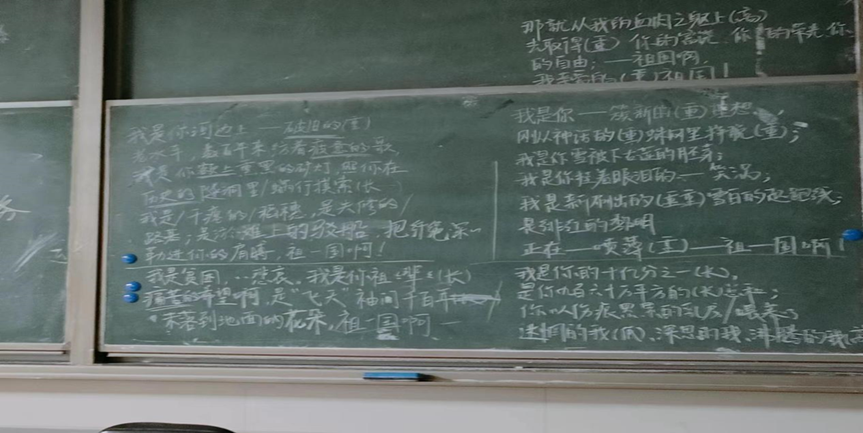 我是你河边上——破旧的(重)
老水车,数百年来纺着疲惫的歌
我是你额上熏黑的矿灯,照你在
历史的隧洞里/蜗行摸索(长
我是/干瘪的/稻穗,是失修的/
路基;是淤滩上的驳船 把纤绳深一
勒进你的肩膊,祖一国啊!
我是贫困,悲哀,我是你祖一辈
痛苦的希望啊,是"飞天"袖间千百年
未落到地面的花朵,祖一国啊—
我是你——簇新的(重)理想
刚从神话的(重)蛛网里挣脱(重);
我是你雪被下古莲的胚芽;
我是你挂着眼泪的—笑涡;
我是新刷出的(重重)雪白的起跑线;
是绯红的黎明
正在——喷薄(重)—祖一国啊!
我是你的十亿分之一(长),
是你九百六十万平方的(长)总和;
你以伤痕累累的乳房/喂养了
迷惘的我(低)、深思的我、沸腾的我
那就从我的血肉之躯上(高)
去取得(重)你的富饶、你的荣光、你
的自由;——祖国啊,
我亲爱的(重)祖国!